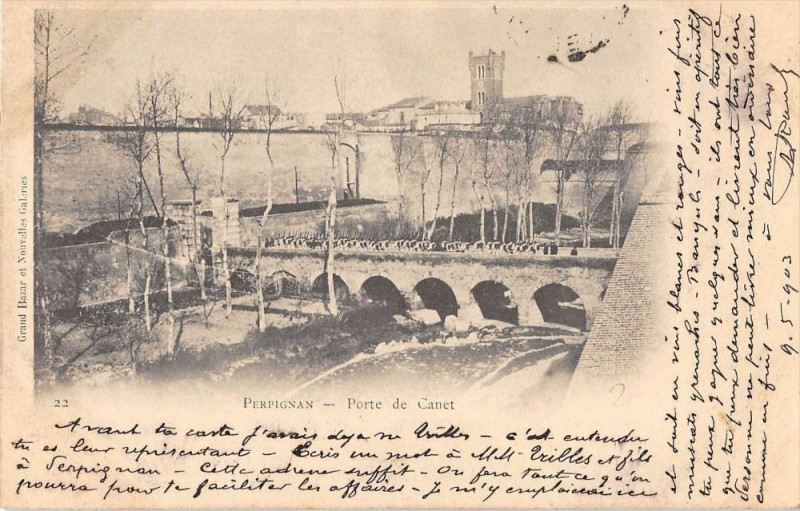 Grand Bazar et Nouvelles Galeries
22 PERPIGNAN — Porte de Canet
Avant ta carte j'avais déjà vu Vrilles - c'est entendu
tu es leur représentant - Ecris un mot à MM Vrilles et fils
à Perpignan - Cette adresse suffit - On fera tout ce qu'on
pourra pour te faciliter les affaires - Je m'y emploierai ici
et soit en vins blancs et rouges - vins fins
muscats grenaches - Banyuls - soit en apéritif
tu peux gagner quelques sous - ils ont tout ce
que tu peux demander et livrent très bien
Personne ne peut livrer mieux en ordinaire
comme en fins - à vous tous
9.5.903